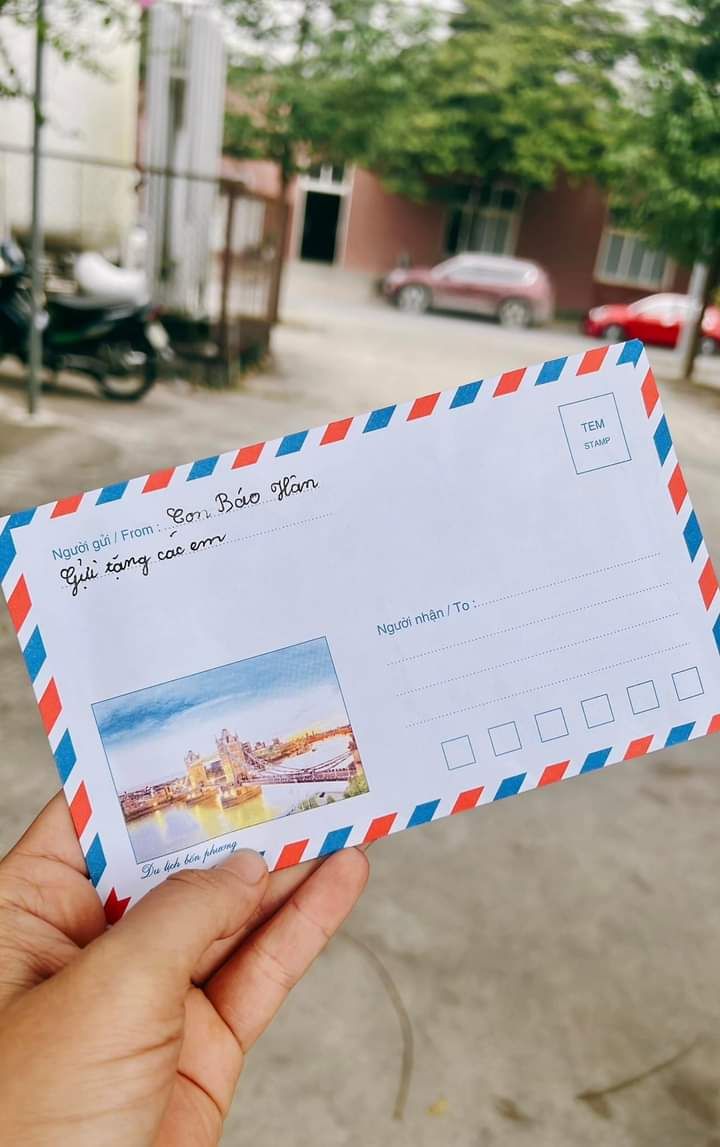 TEM
STAMP
Người gửi / From : Con Bảo Hân
Gửi tặng các em
Người nhận / To :
Du lịch bốn phương